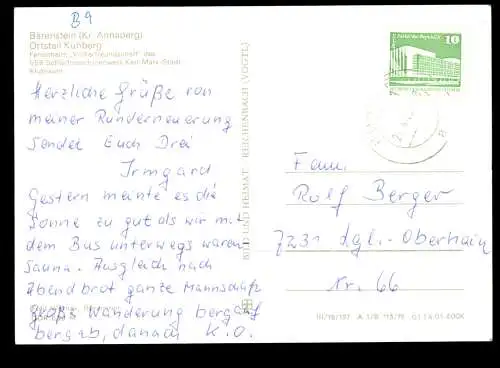 B9
Bärenstein (Kr. Annaberg)
Ortsteil Kühberg
Ferienheim "Völkerfreundschaft" des
VEB Schleifmaschinenwerk Karl-Marx-Stadt
Klubraum
Herzliche Grüße von
meiner Runderneuerung
sendet Euch Drei
Irmgard
Gestern meinte es die
Sonne zu gut als wir mit
dem Bus unterwegs waren.
Sauna. Ausgleich nach
Abendbrot ganze Mannschaft
große Wanderung bergauf
bergab, danach K.O.
BILD UND HEIMAT REICHENBACH (VOGTL)
10
Fam.
Rolf Berger
7231 Lgl.-Oberhain
Nr. 66
III/18/197 A 1/B 113/79 01 14 01 400K